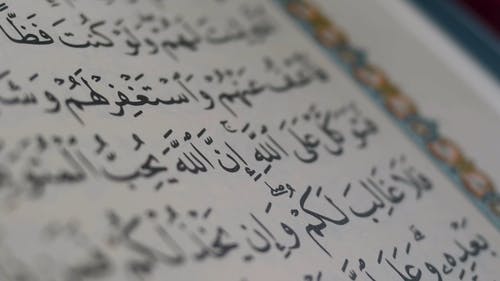 لِنتَ لَهُمْ وَلَوْ كُنتَ فَظًّا
فَٱعْفُ عَنْهُمْ وَٱسْتَغْفِرْ لَهُمْ وَشَا
فَتَوَكَّلْ عَلَى ٱللَّهِ إِنَّ ٱللَّهَ يُحِبُّ
فَلَا غَالِبَ لَكُمْ وَإِن يَخْذُلْكُمْ
بَعْدِهِۦ وَعَلَى